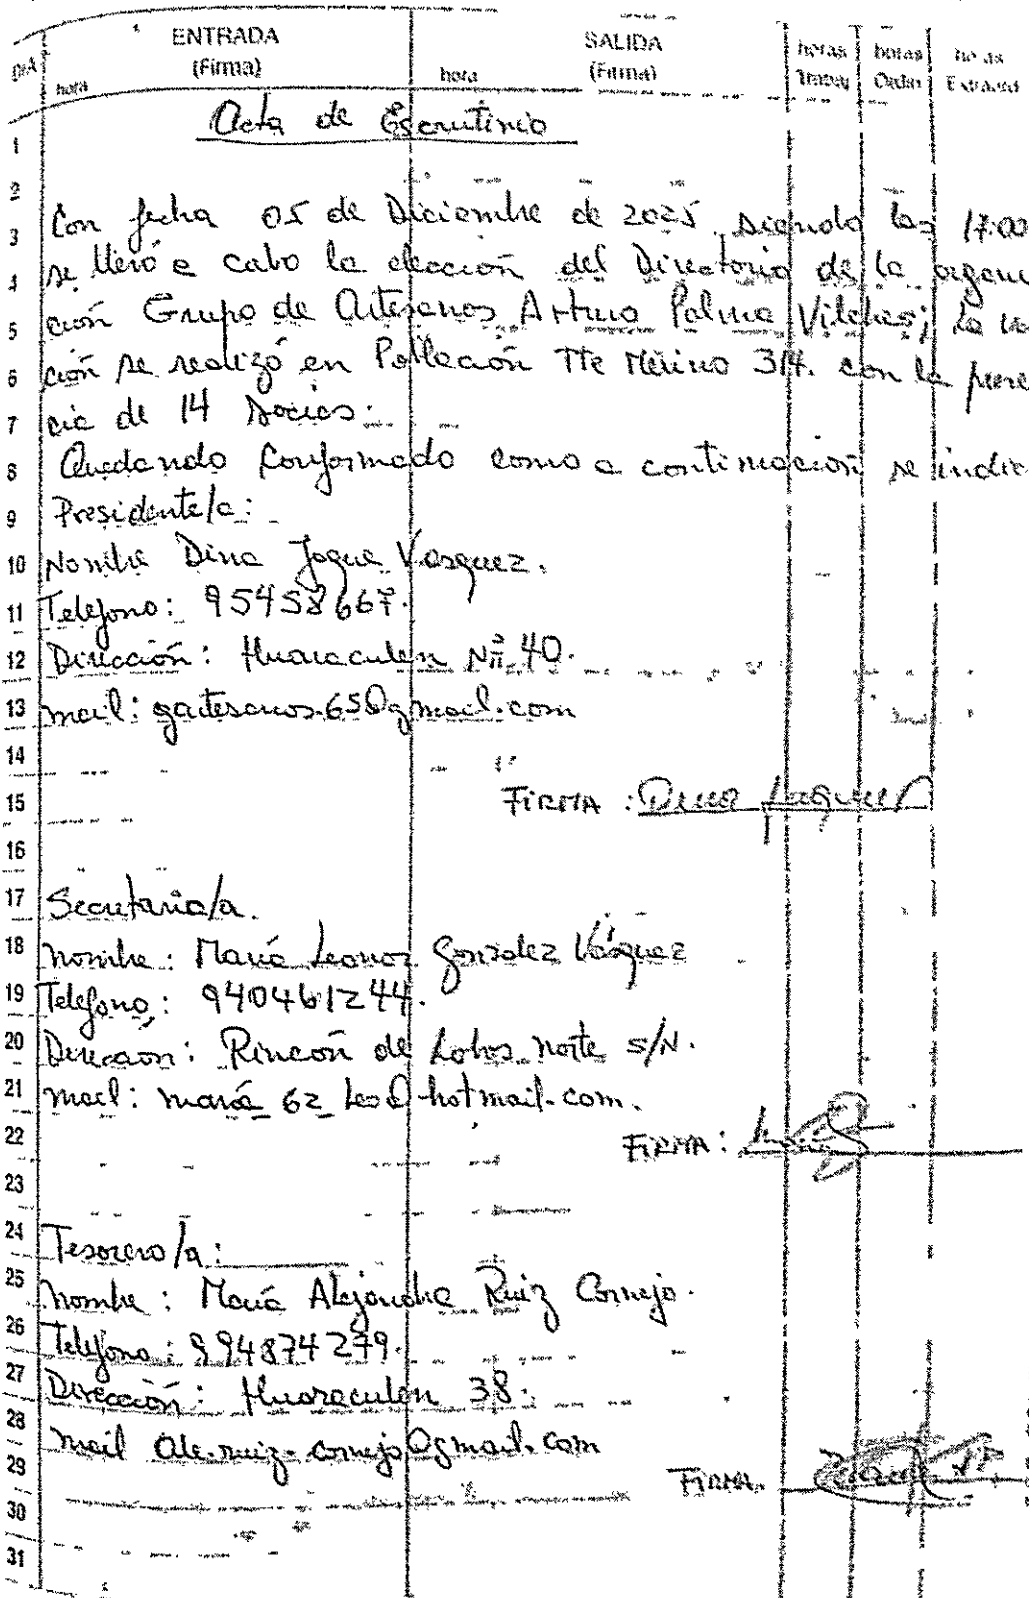 DIA hora ENTRADA (Firma) hora SALIDA (Firma) horas Trabaj horas Ordin horas Extraord
Acta de Escrutinio
1
2
3 Con fecha 05 de Diciembre de 2025, siendo las 17:00
4 se llevó a cabo la elección del Directorio de la organi
5 ción Grupo de Artesanos Arturo Palma Vilches; la vo
6 ción se realizó en Población Tte Merino 314. con la presen
7 cia de 14 socios.
8 Quedando conformado como a continuación se indic
9 Presidente/a:
10 Nombre Dina Jaque Vasquez.
11 Telefono: 95458667.
12 Dirección: Huaraculen Nº 40.
13 mail: gartesanos.65@gmail.com
14
15 FIRMA: Dina Jaque
16
17 Secretaria/a.
18 Nombre: María Leonor Gonzalez Vásquez
19 Telefono: 940461244.
20 Dirección: Rincón de Lobos norte S/N.
21 mail: maria 62 leo@hotmail.com.
22 FIRMA:
23
24 Tesorero/a:
25 Nombre: María Alejandra Ruiz Cornejo.
26 Telefono: 994874279.
27 Dirección: Huaraculen 38.
28 mail ale.ruiz.cornejo@gmail.com
29 FIRMA.
30
31